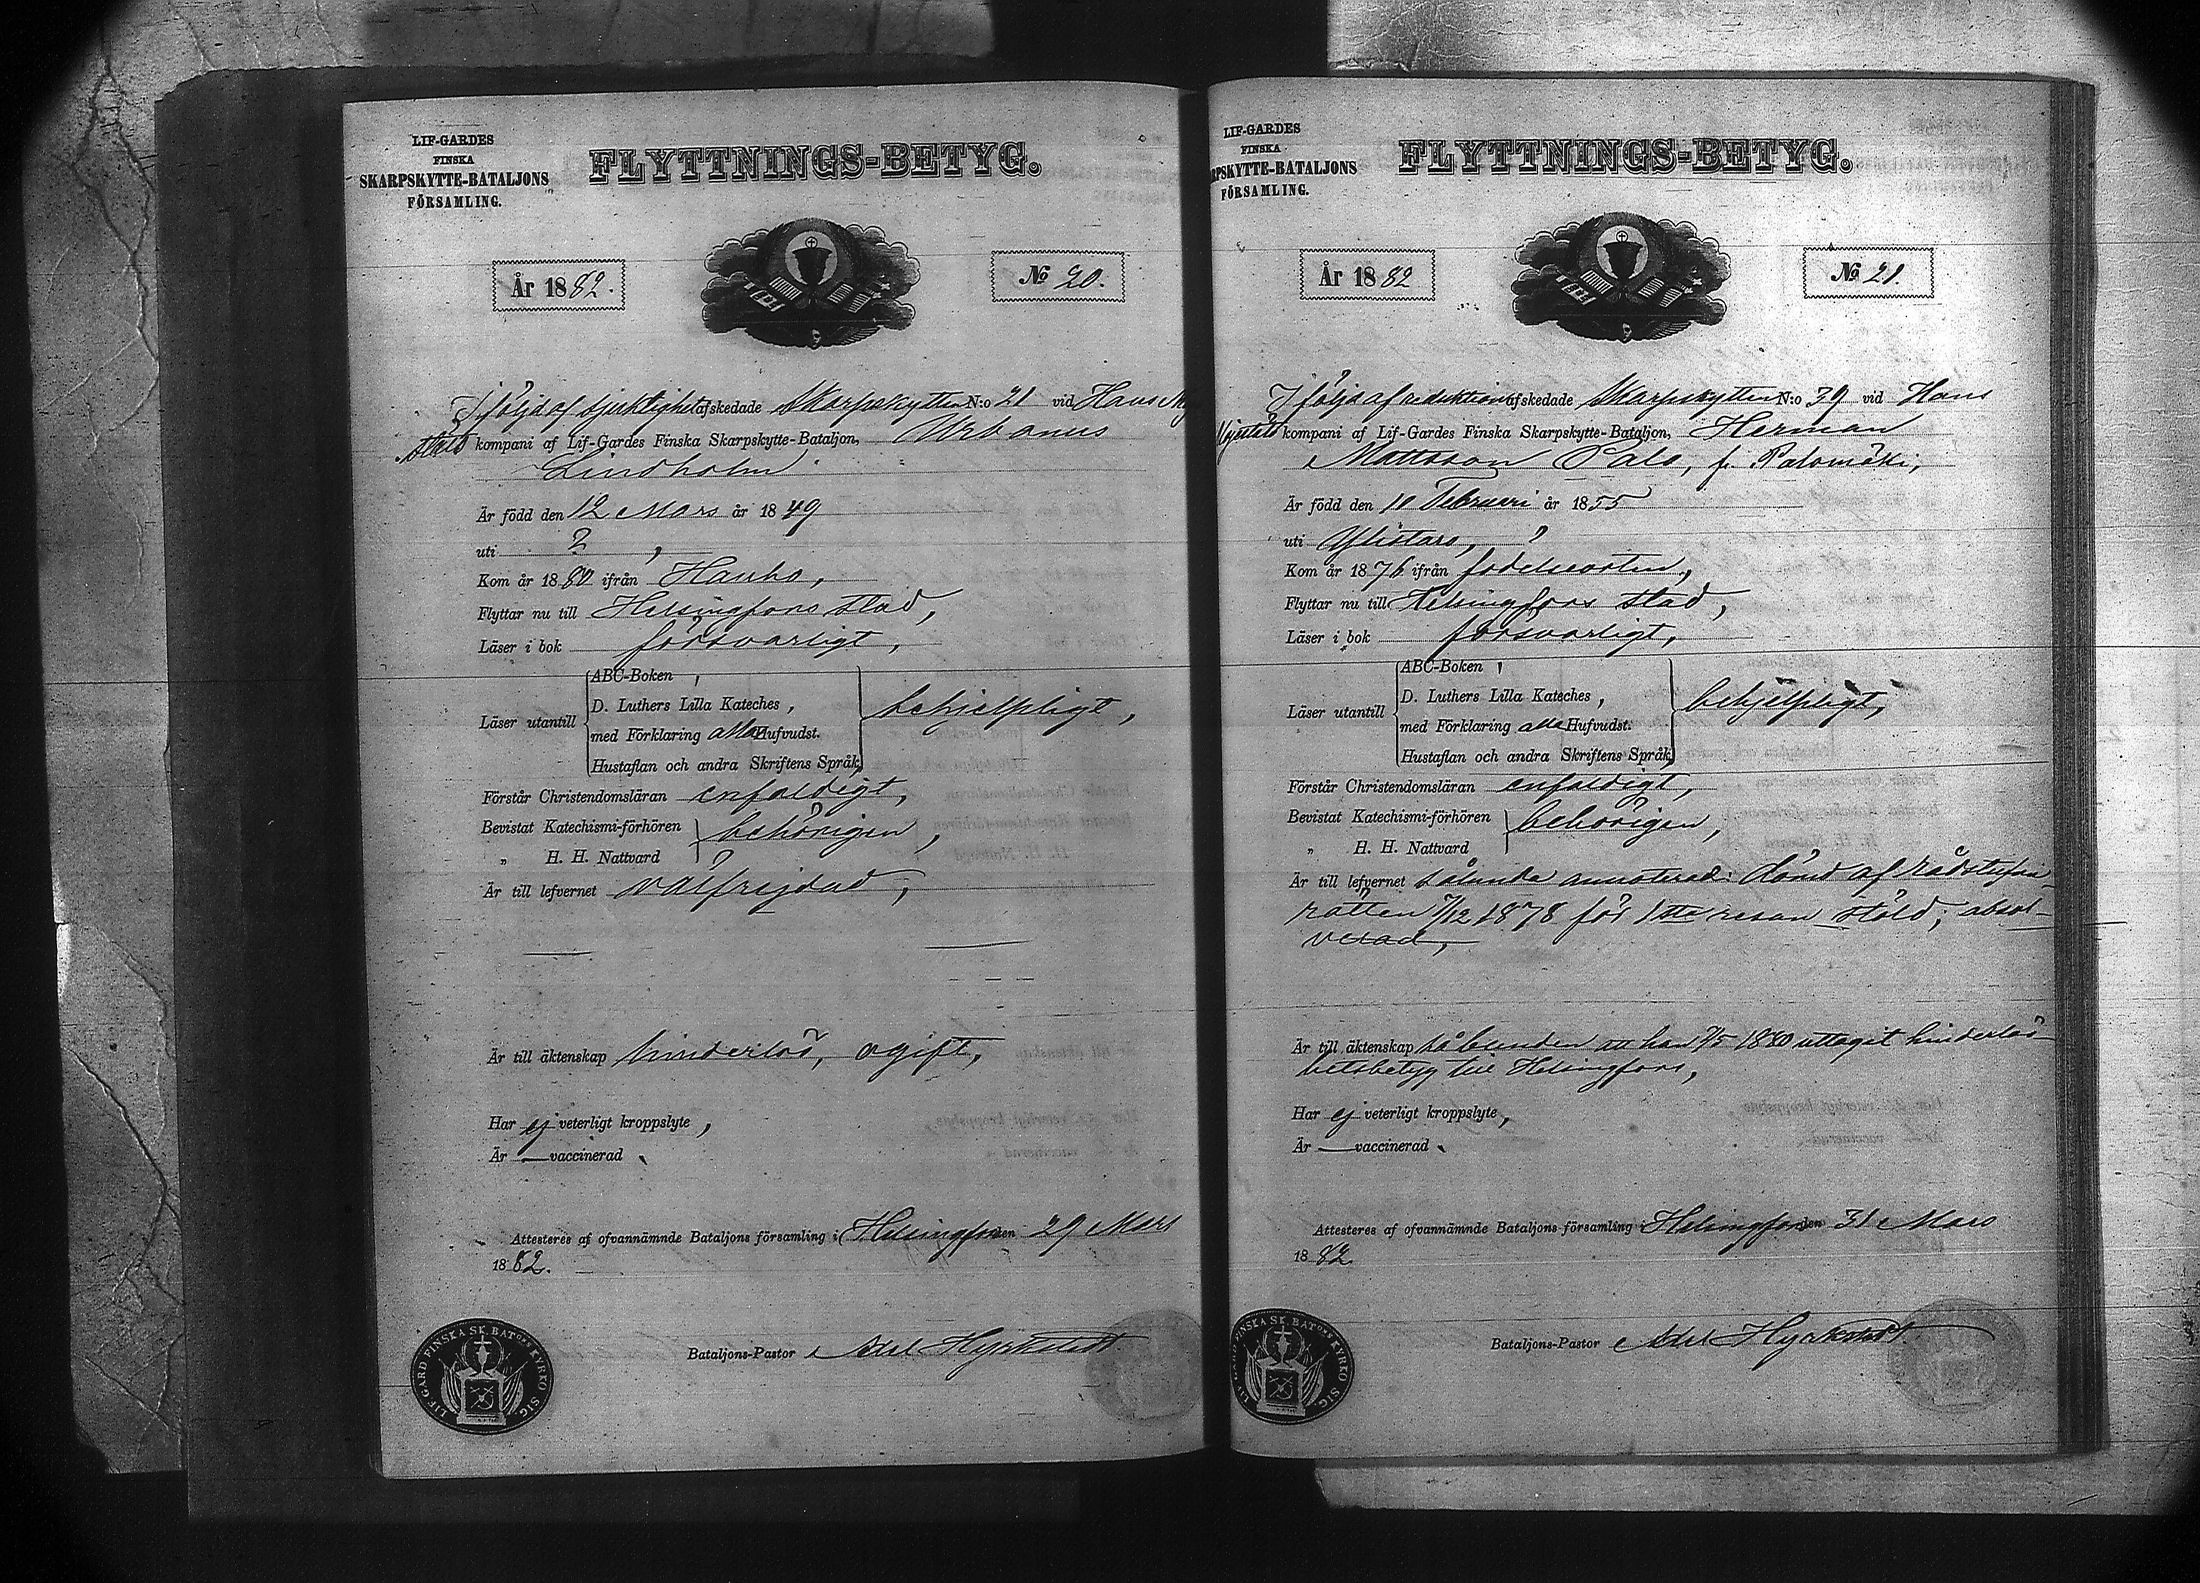 LIF-GARDES
FINSKA
SKARPSKYTTE-BATALJONS
FÖRSAMLING.
FLYTTNINGS-BETYG.
År 1882.
No 20.
I följd af sjuklighet afskedade Skarpskytten N:o 21 vid Hans Maj
stäts kompani af Lif-Gardes Finska Skarpskytte-Bataljon, Urbanus
Lindholm
Är född den 12 Mars år 1849
uti ? ,
Kom år 1880 ifrån Hauho,
Flyttar nu till Helsingfors stad,
Läser i bok försvarligt,
ABC-Boken ,
D. Luthers Lilla Kateches ,
Läser utantill behjelpligt,
med Förklaring alla Hufvudst.
Hustaflan och andra Skriftens Språk,
Förstår Christendomsläran enfaldigt,
Bevistat Katechismi-förhören behörigen,
„ H. H. Nattvard
Är till lefvernet välfrejdad,
Är till äktenskap hinderlös, ogift,
Har ej veterligt kroppslyte ,
Är — vaccinerad ,
Attesteres af ofvannämnde Bataljons församling i Helsingfors den 29 Mars
1882.
Bataljons-Pastor Axel Hyrkstedt.
LIF. GARD FINSKA SK. BATONS KYRKO SIG.
LIF-GARDES
FINSKA
RPSKYTTE-BATALJONS
FÖRSAMLING.
FLYTTNINGS-BETYG.
År 1882
No 21.
I följd af reduktion afskedade Skarpskytten N:o 39 vid Hans
Majestäts kompani af Lif-Gardes Finska Skarpskytte-Bataljon, Herman
Mattsson Palo, f. Palomäki,
Är född den 10 Februari år 1855
uti Ylistaro,
Kom år 1876 ifrån födelseorten,
Flyttar nu till Helsingfors stad,
Läser i bok försvarligt,
ABC-Boken ,
D. Luthers Lilla Kateches ,
Läser utantill behjelpligt,
med Förklaring alla Hufvudst.
Hustaflan och andra Skriftens Språk,
Förstår Christendomsläran enfaldigt,
Bevistat Katechismi-förhören behörigen,
„ H. H. Nattvard
Är till lefvernet sålunda annoterad: dömd af rådstufvu-
rätten 7/12 1878 för 1sta resan stöld; absol-
verad,
Är till äktenskap så bunden att han 7/5 1880 uttagit hinderlös-
hetsbetyg till Helsingfors,
Har ej veterligt kroppslyte ,
Är — vaccinerad ,
Attesteres af ofvannämnde Bataljons församling i Helsingfors den 31 Mars
1882.
Bataljons-Pastor Axel Hyrkstedt.
LIF. GARD FINSKA SK. BATONS KYRKO SIG.